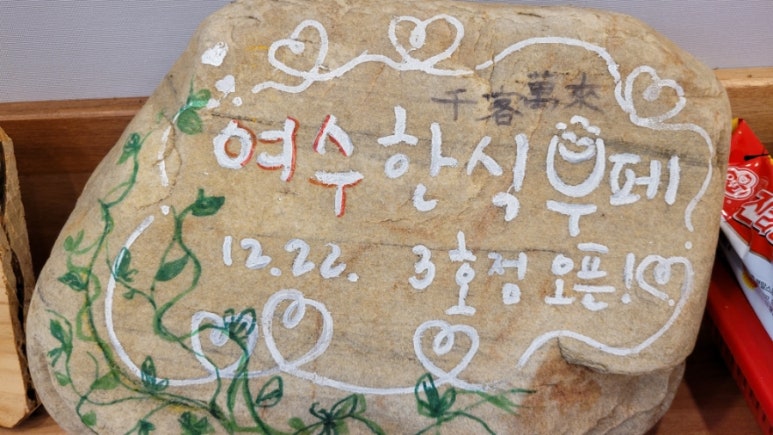 千客萬來
여수한식부페
12.22. 3호점 오픈!